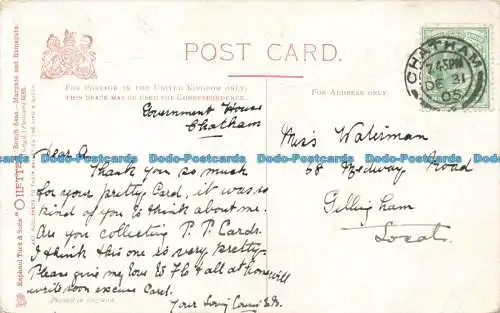 POST CARD.
FOR POSTAGE IN THE UNITED KINGDOM ONLY,
THIS SPACE MAY BE USED FOR CORRESPONDENCE.
FOR ADDRESS ONLY.
CHATHAM
7.45PM
DE 31
05
Government House
Chatham
Dear A
Thank you so much
for your pretty Card, it was so
kind of you to think about me.
Are you collecting P. P. Cards.
I think this one is very pretty.
Please give my love to Flo & all at home will
write soon excuse Card.
Your loving
Miss Waterman
58 Medway Road
Gillingham
Local.
Raphael Tuck & Sons' "OILETTE"
Margate and Ramsgate.
Printed in England.
Dodo-Postcards Dodo-Postcards Dodo-Postcards Dodo-Postcards